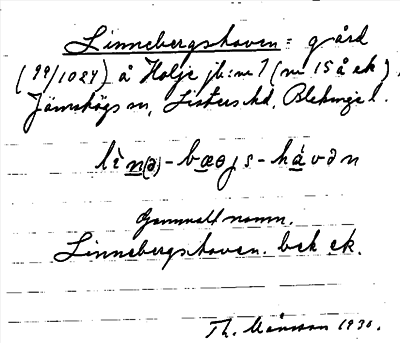 Linnebergshoven: gård
(99/1024) å Holje jb:nr 7 (nr 15 å ek),
Jämshögs sn, Listers hd, Blekinge l.
lìn(ə)-bæøjs-hávən
Gammalt namn.
Linnebergshoven. bek ek.
Th. Månsson 1930.